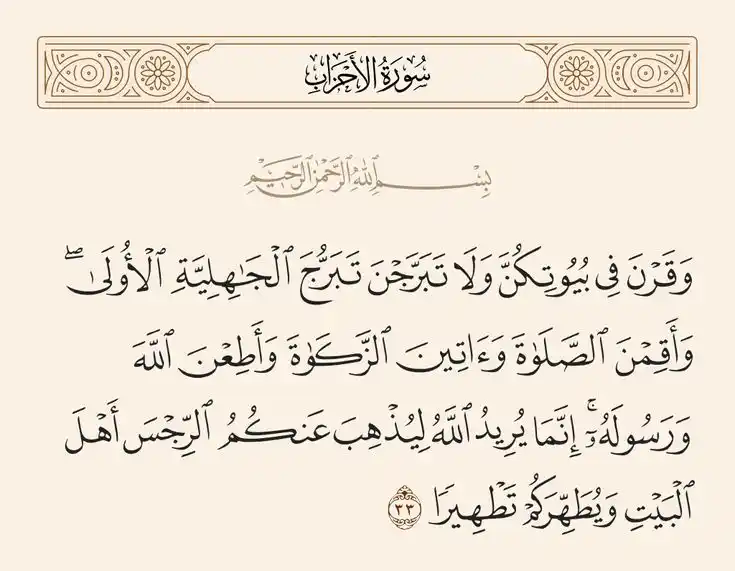 سُورَةُ الأَحْزَابِ
بِسْمِ ٱللَّهِ ٱلرَّحْمَٰنِ ٱلرَّحِيمِ
وَقَرْنَ فِى بُيُوتِكُنَّ وَلَا تَبَرَّجْنَ تَبَرُّجَ ٱلْجَـٰهِلِيَّةِ ٱلْأُولَىٰ ۖ
وَأَقِمْنَ ٱلصَّلَوٰةَ وَءَاتِينَ ٱلزَّكَوٰةَ وَأَطِعْنَ ٱللَّهَ
وَرَسُولَهُۥٓ ۚ إِنَّمَا يُرِيدُ ٱللَّهُ لِيُذْهِبَ عَنكُمُ ٱلرِّجْسَ أَهْلَ
ٱلْبَيْتِ وَيُطَهِّرَكُمْ تَطْهِيرًا ٣٣